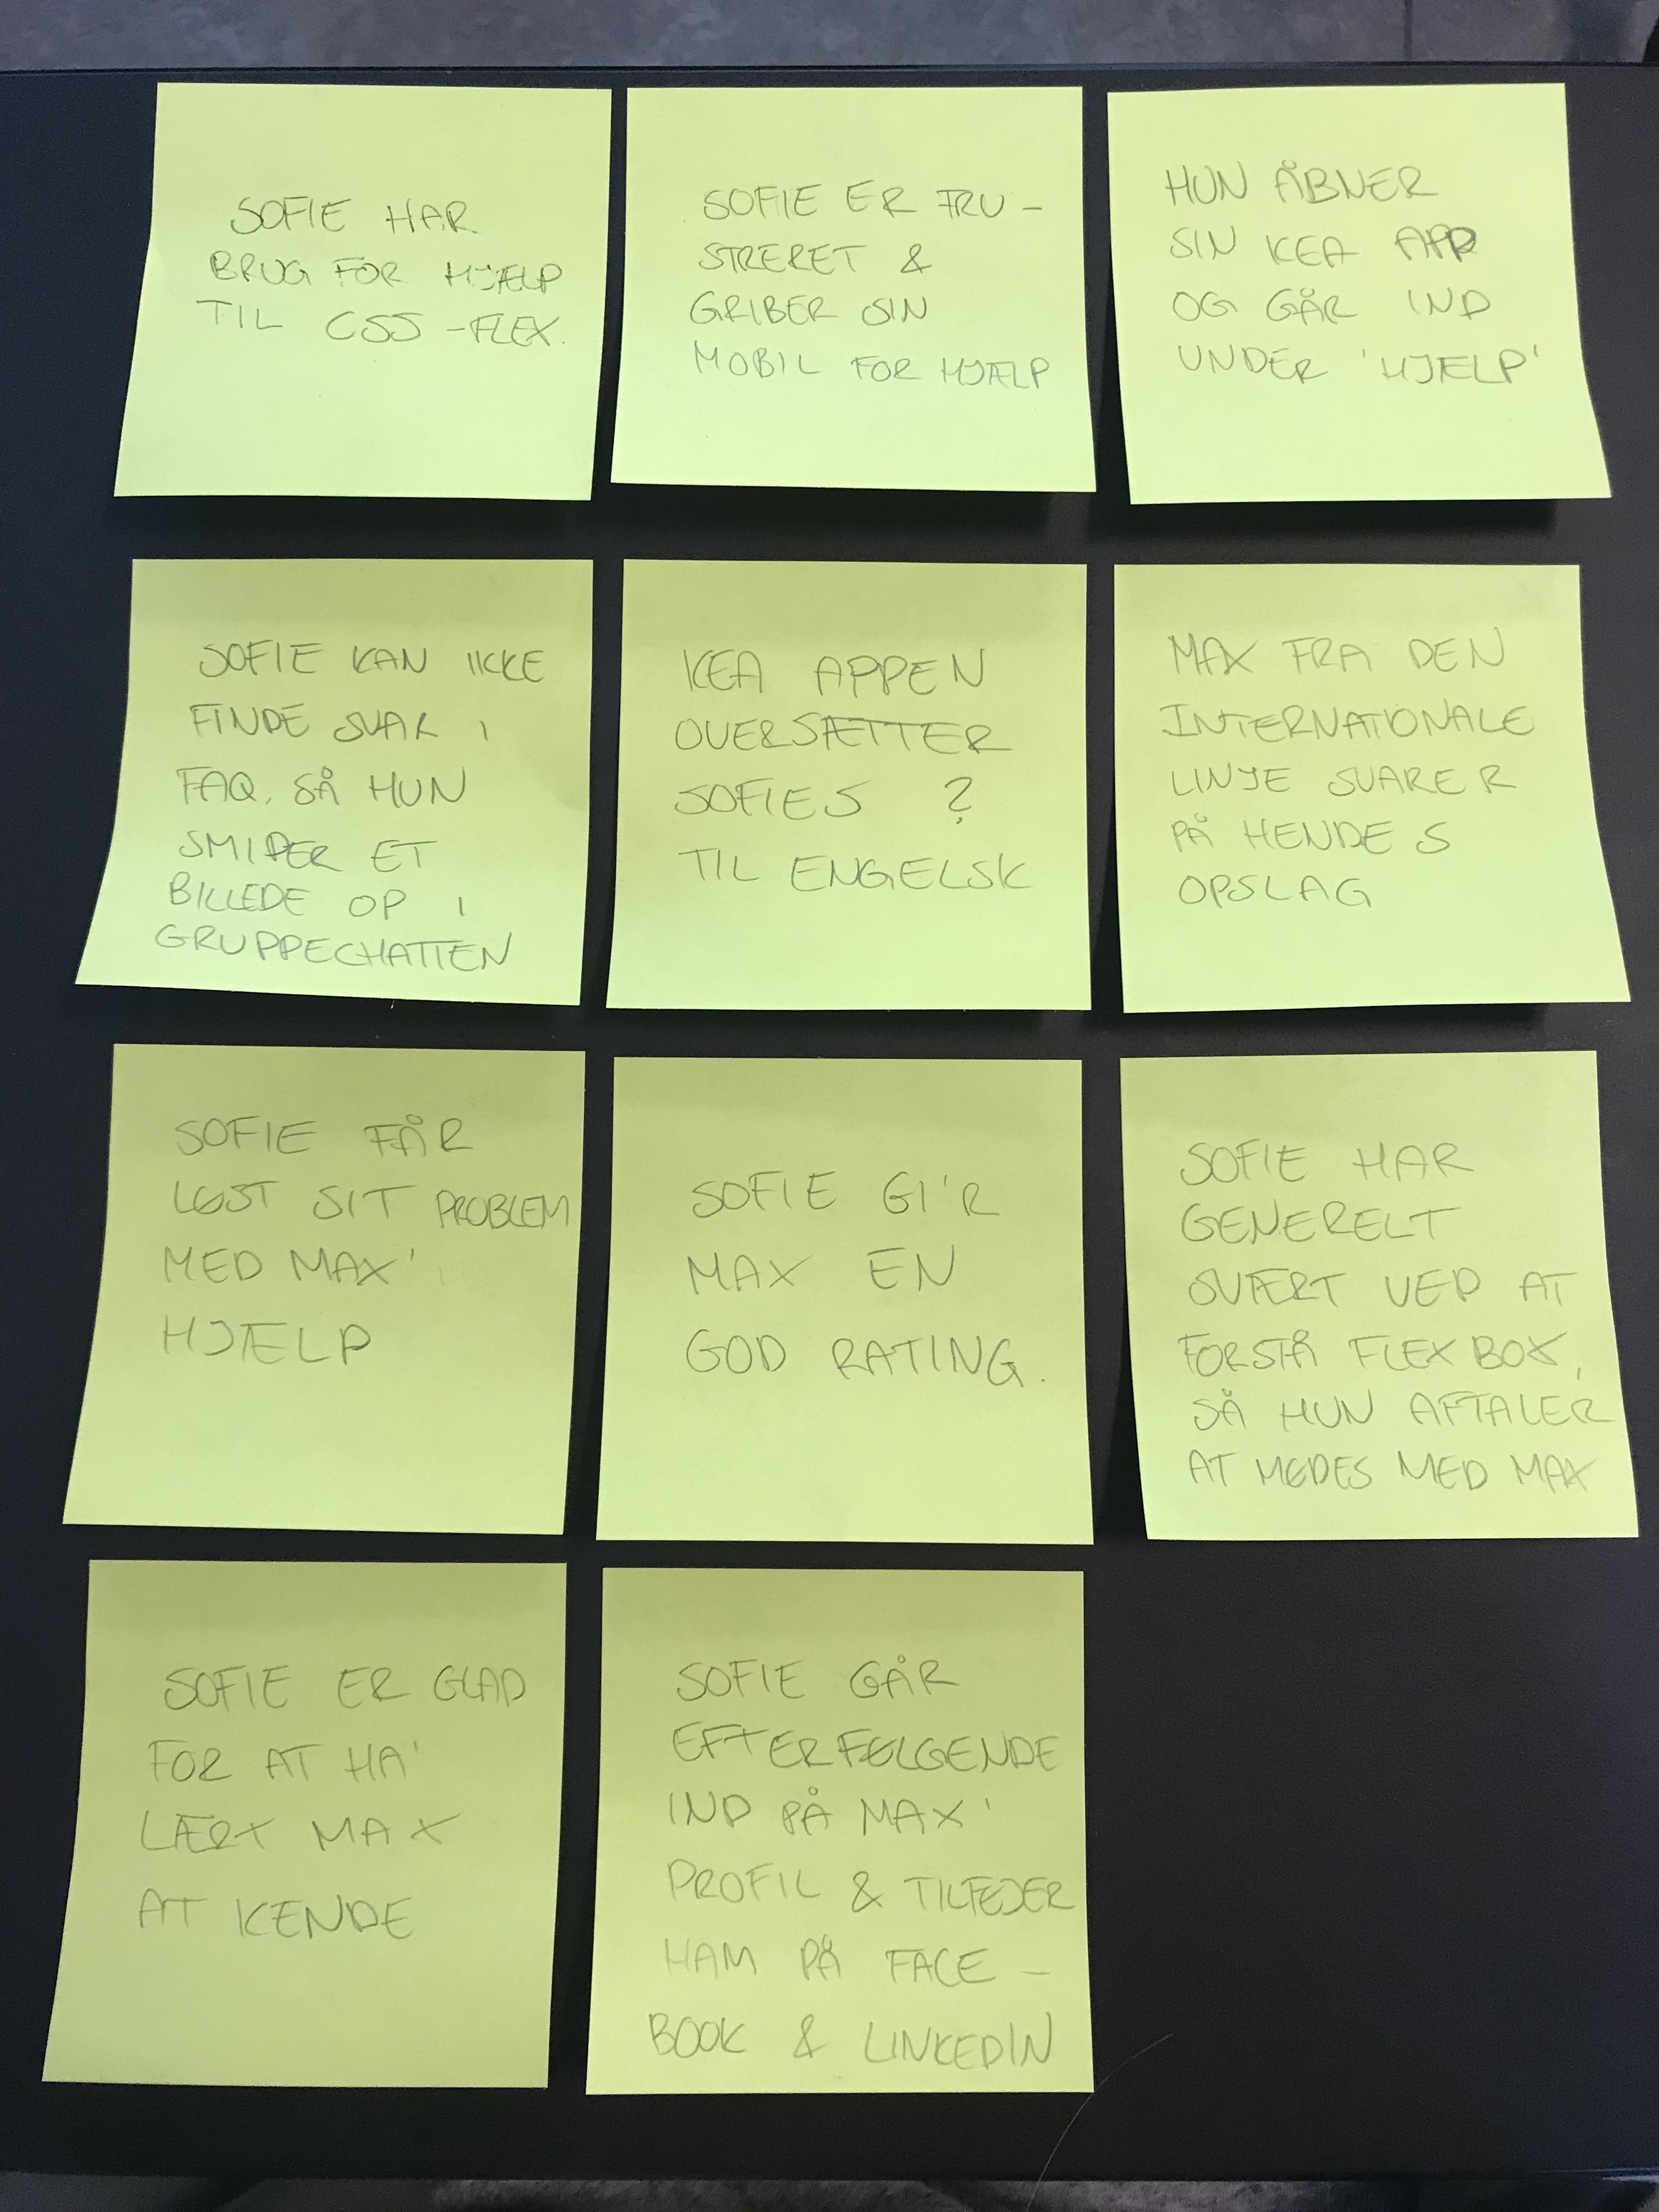 SOFIE HAR
BRUG FOR HJÆLP
TIL CSS-FLEX.
SOFIE ER FRU-
STRERET &
GRIBER SIN
MOBIL FOR HJÆLP
HUN ÅBNER
SIN KEA APP
OG GÅR IND
UNDER 'HJÆLP'
SOFIE KAN IKKE
FINDE SVAR I
FAQ, SÅ HUN
SMIDER ET
BILLEDE OP I
GRUPPECHATTEN
KEA APPEN
OVERSÆTTER
SOFIES ?
TIL ENGELSK
MAX FRA DEN
INTERNATIONALE
LINJE SVARER
PÅ HENDES
OPSLAG
SOFIE FÅR
LØST SIT PROBLEM
MED MAX'
HJÆLP
SOFIE GI'R
MAX EN
GOD RATING.
SOFIE HAR
GENERELT
SVÆRT VED AT
FORSTÅ FLEXBOX,
SÅ HUN AFTALER
AT MØDES MED MAX
SOFIE ER GLAD
FOR AT HA'
LÆRT MAX
AT KENDE
SOFIE GÅR
EFTERFØLGENDE
IND PÅ MAX'
PROFIL & TILFØJER
HAM PÅ FACE-
BOOK & LINKEDIN